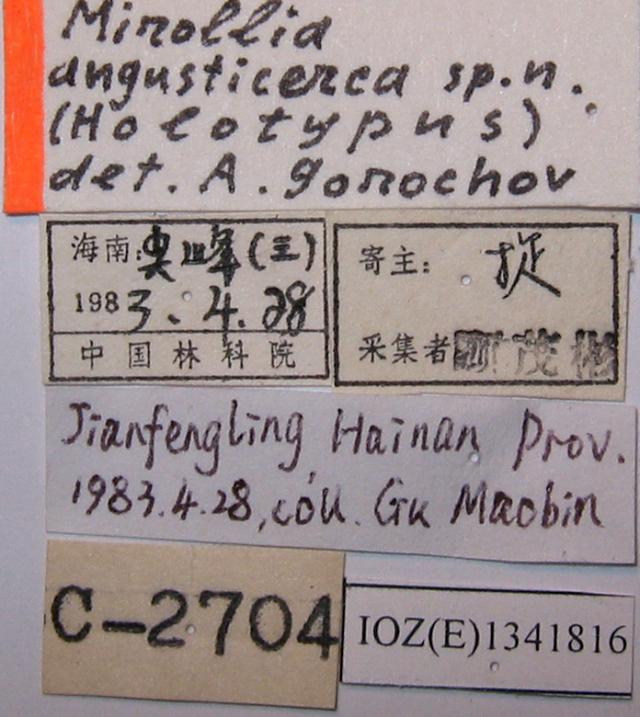 Mirollia
angusticerca sp.n.
(Holotypus)
det. A. Gorochov
海南:尖峰(三)
1983.4.28
中国林科院
寄主: 捉
采集者 顾茂彬
Jianfengling, Hainan Prov.
1983.4.28, coll. Gu Maobin
C-2704
IOZ(E)1341816